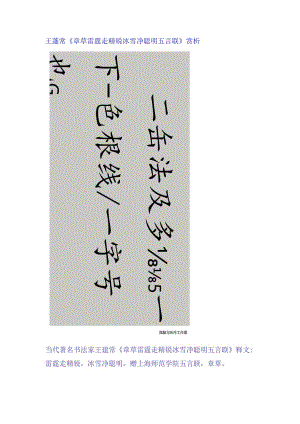 王蘧常《章草雷霆走精锐冰雪净聪明五言联》赏析
二缶法及多⅛⅛5一
下-色根线/一字号
也
当代著名书法家王建常《章草雷霆走精锐冰雪净聪明五言联》释文:
雷霆走精锐,冰雪净聪明。赠上海师范学院五言联,章草。